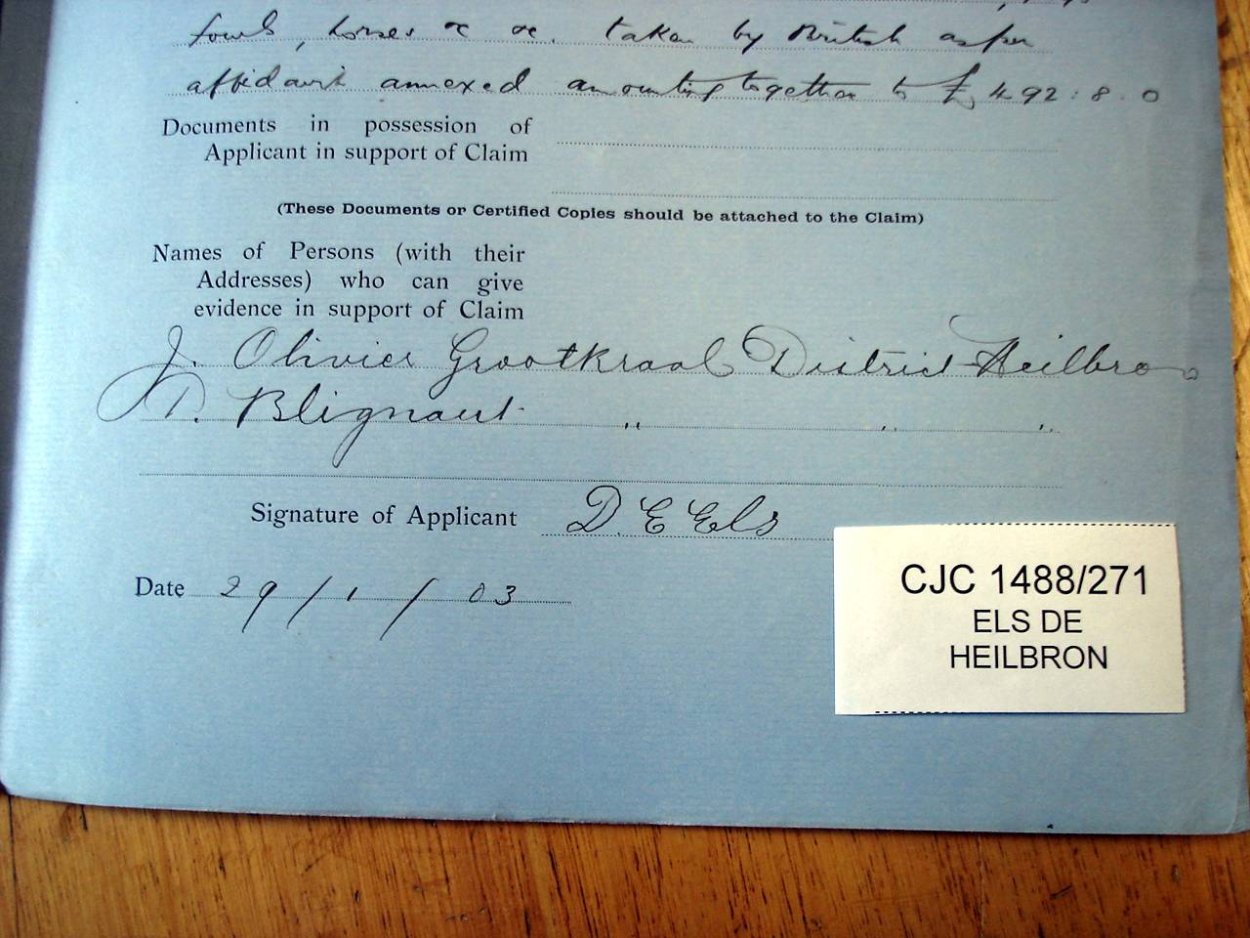 fowls, horses &c &c. taken by British as per
affidavit annexed amounting together to £492:8.0
Documents in possession of
Applicant in support of Claim
(These Documents or Certified Copies should be attached to the Claim)
Names of Persons (with their
Addresses) who can give
evidence in support of Claim
J. Olivier Grootkraal District Heilbron
D. Blignaut " " "
Signature of Applicant D E Els
Date 29/1/03
CJC 1488/271
ELS DE
HEILBRON